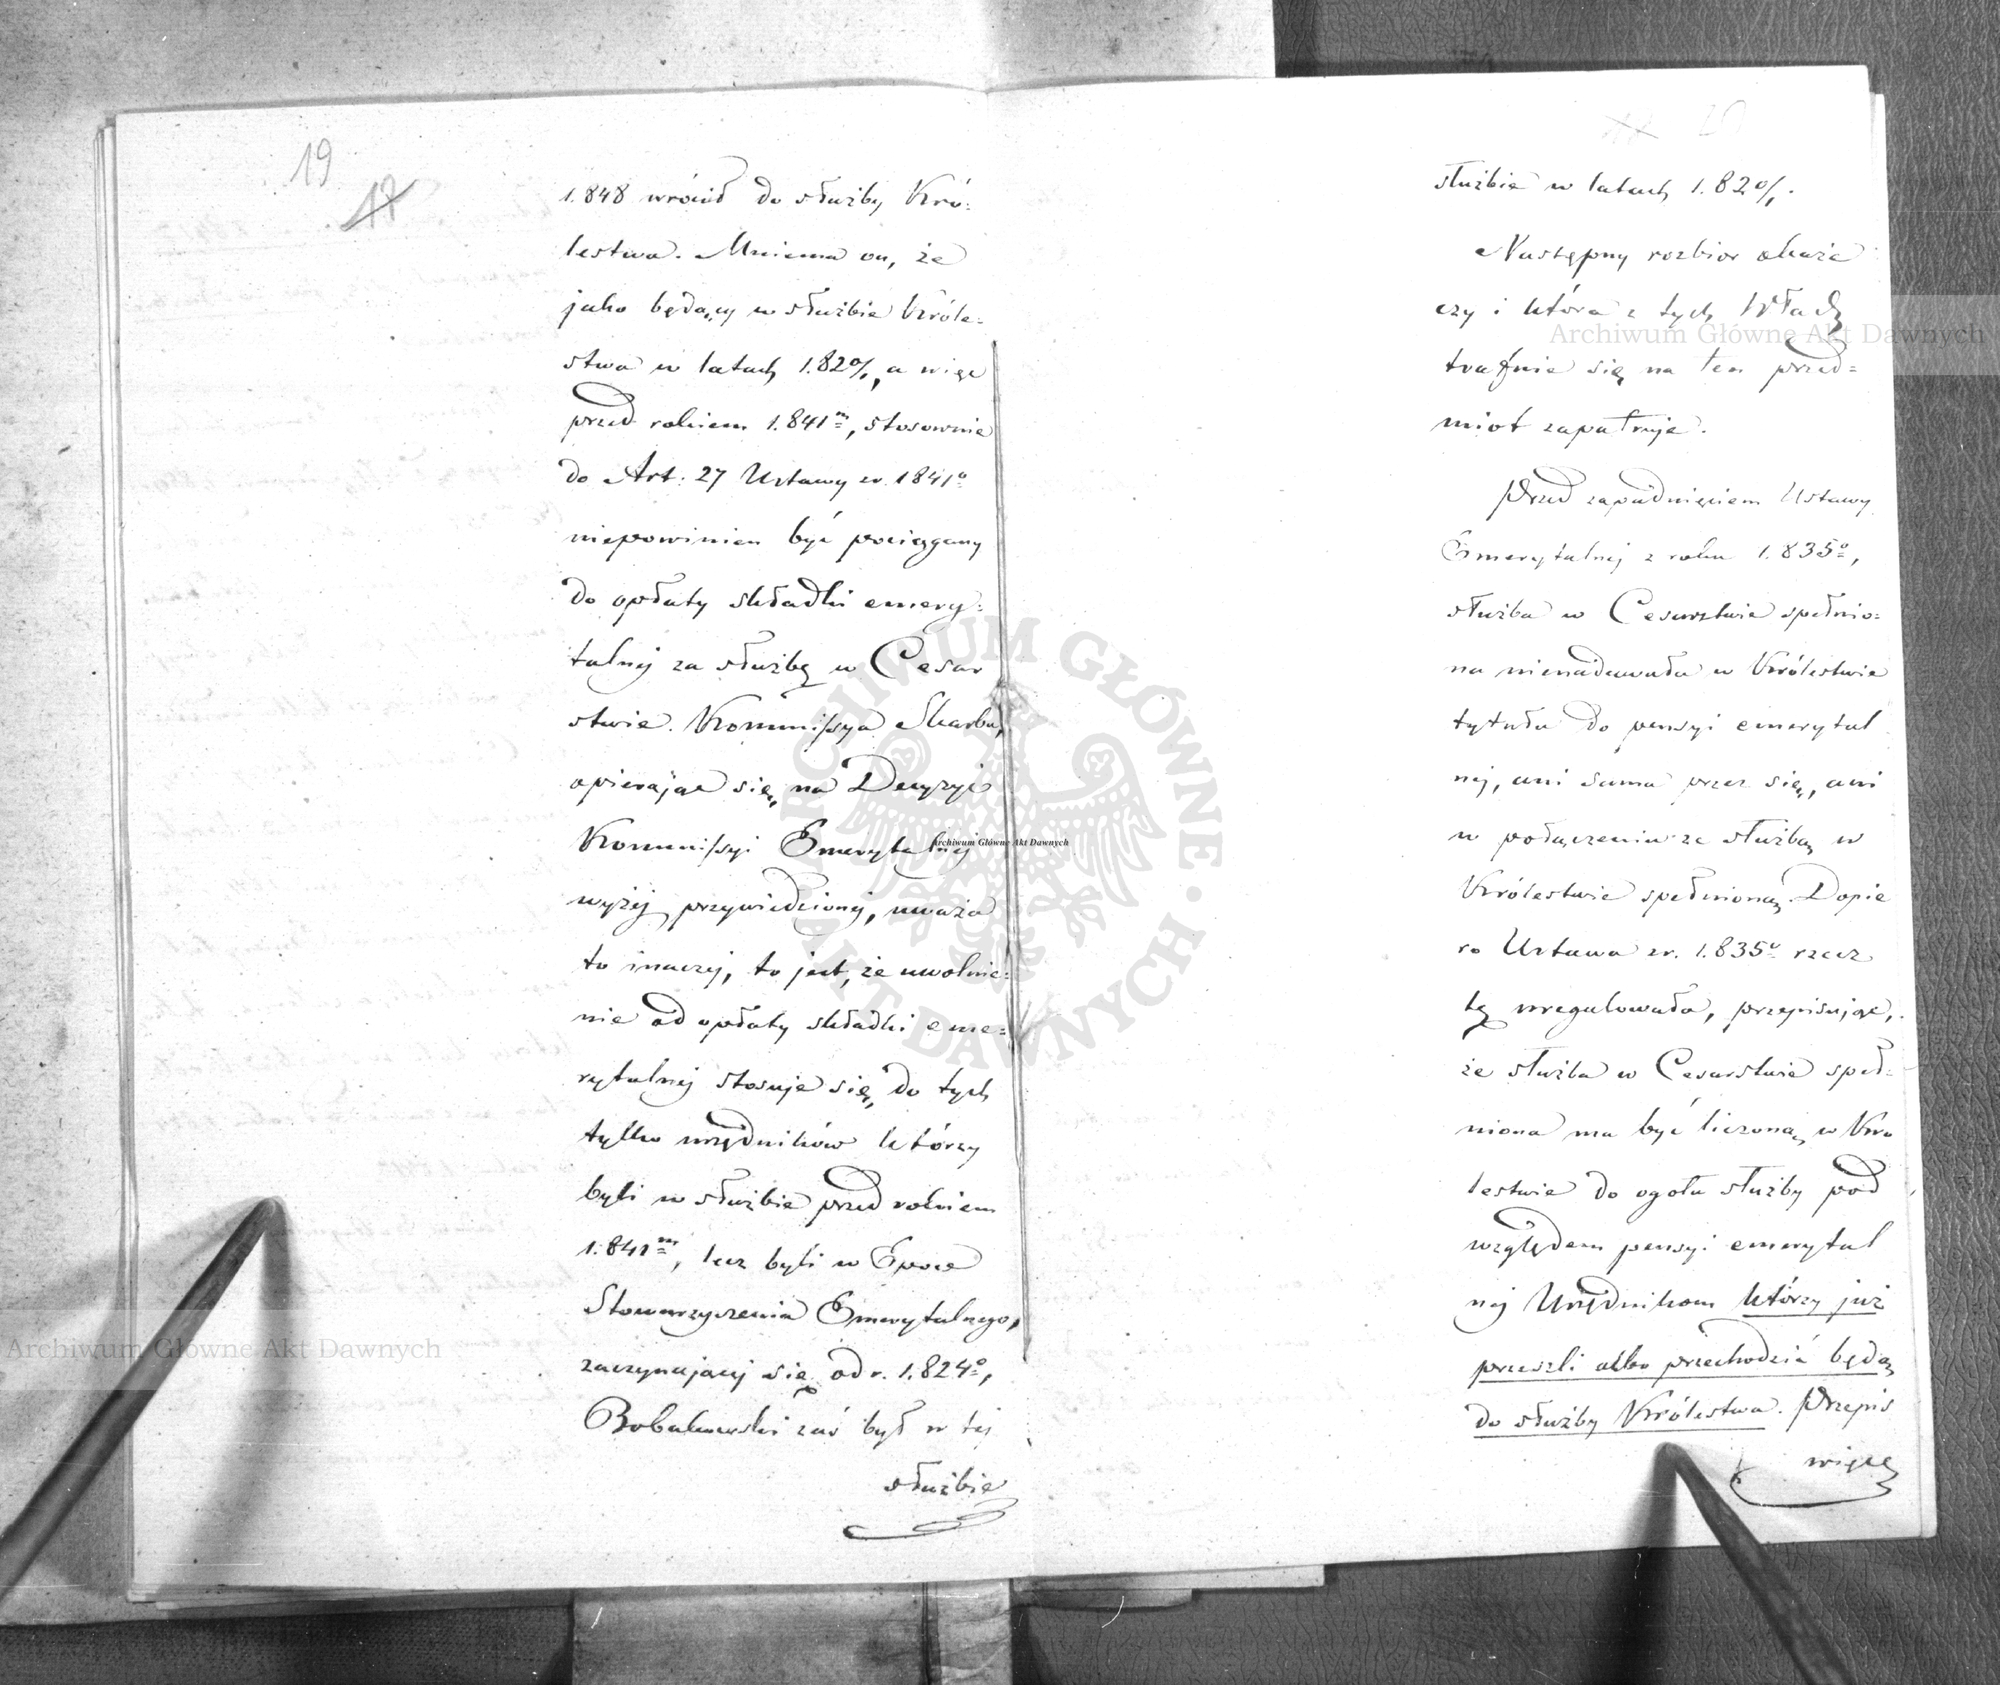 19
18
1.848 wrócił do służby Kró=
lestwa. Mniema on, że
jako będący w służbie Króle=
stwa w latach 1.820/1, a więc
przed rokiem 1.841m, stosownie
do Art: 27 Ustawy z r. 1841o
niepowinien być pociągany
do opłaty składki emery=
talnej za służbę w Cesar
stwie. Kommissya Skarbu,
opierając się na Decyzyi
Kommissyi Emerytalnej
wyżej przywiedzionej, uważa
to inaczej, to jest, że uwolnie=
nie od opłaty składki eme=
rytalnej stosuje się do tych
tylko urzędników którzy
byli w służbie przed rokiem
1.841m, lecz byli w Epoce
Stowarzyszenia Emerytalnego,
zaczynającej się od r. 1.824o,
Bobakowski zaś był w tej
służbie
20
służbie w latach 1.820/1.
Następny rozbior okaże
czy i która z tych Władz
trafnie się na ten przed=
miot zapatruje.
Przed zapadnięciem Ustawy
Emerytalnej z roku 1.835o,
służba w Cesarstwie spełnio=
na nienadawała w Królestwie
tytułu do pensyi emerytal
nej, ani sama przez się, ani
w połączeniu ze służbą w
Królestwie spełnioną. Dopie
ro Ustawa z r. 1.835o rzecz
tę uregulowała, przepisując,
że służba w Cesarstwie speł=
niona ma być liczoną w Kró
lestwie do ogołu służby pod
względem pensyi emerytal
nej Urzędnikom którzy już
przeszli albo przechodzić będą
do służby Królestwa. Przepis
więc
Archiwum Główne Akt Dawnych
Archiwum Główne Akt Dawnych
Archiwum Główne Akt Dawnych
ARCHIWUM GŁÓWNE · AKT DAWNYCH ·